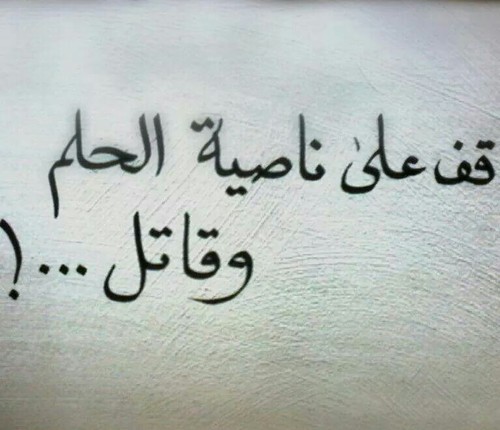 قف علىٰ ناصية الحلم
وقاتل ...!